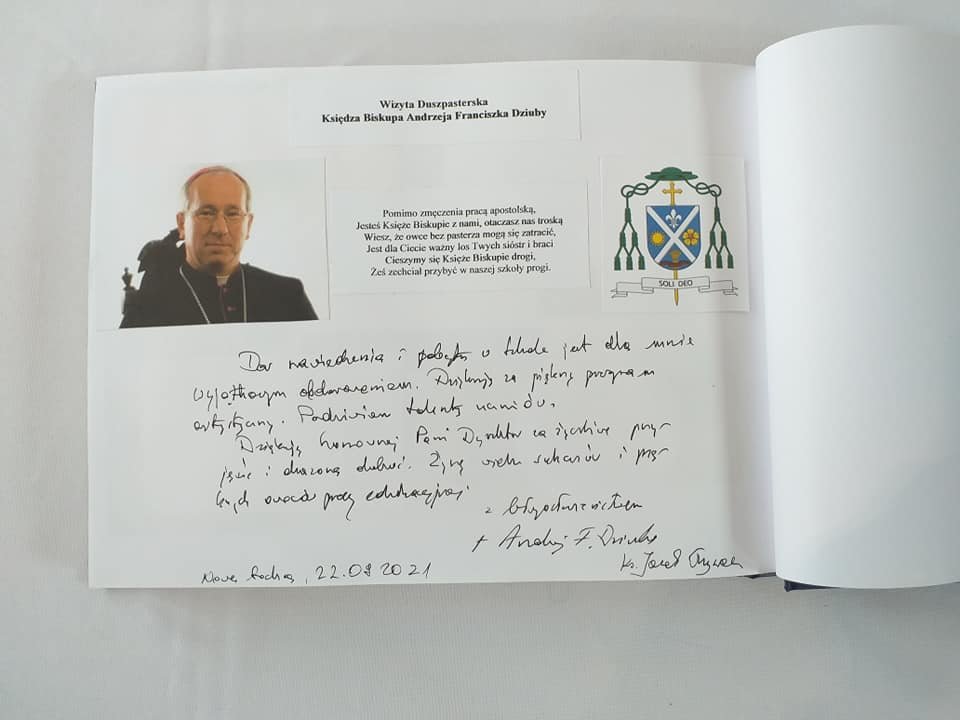 Wizyta Duszpasterska
Księdza Biskupa Andrzeja Franciszka Dziuby
Pomimo zmęczenia pracą apostolską,
Jesteś Księże Biskupie z nami, otaczasz nas troską
Wiesz, że owce bez pasterza mogą się zatracić,
Jest dla Ciecie ważny los Twych sióstr i braci
Cieszymy się Księże Biskupie drogi,
Żeś zechciał przybyć w naszej szkoły progi.
SOLI DEO
Dar nawiedzenia i pobytu w szkole jest dla mnie
wyjątkowym obdarowaniem. Dziękuję za piękny program
artystyczny. Podziwiam talenty uczniów.
Dziękuję Szanownej Pani Dyrektor za życzliwe przy-
jęcie i okazaną dobroć. Życzę wielu sukcesów i pię-
knych owoców pracy edukacyjnej
z błogosławieństwem
+ Andrzej F. Dziuba
ks. Jacek
22.09 2021